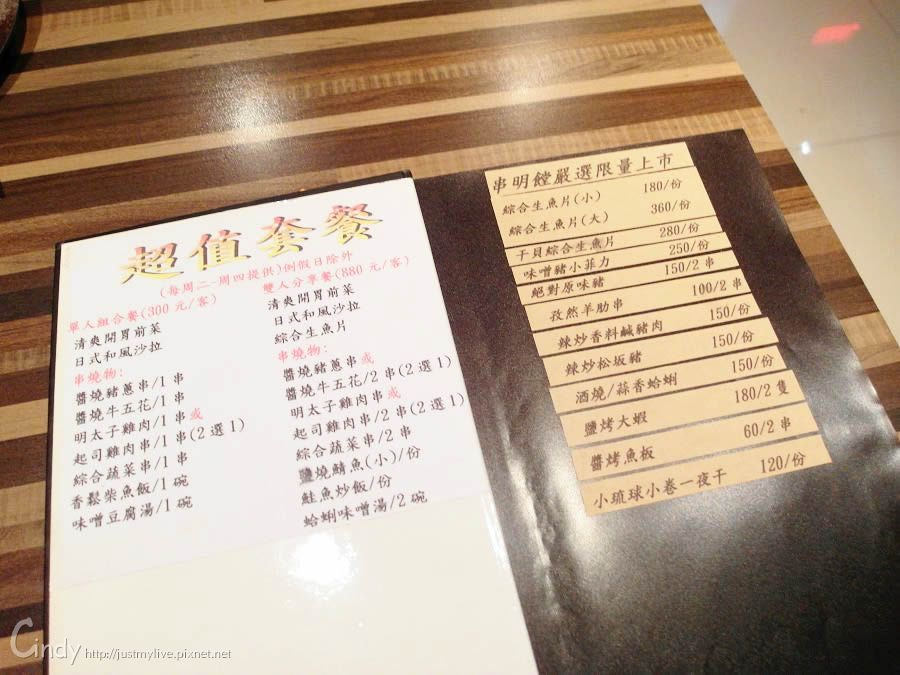 超值套餐
(每周二-周四提供)例假日除外
單人組合餐(300 元/客)
清爽開胃前菜
日式和風沙拉
串燒物:
醬燒豬蔥串/1 串
醬燒牛五花/1 串
明太子雞肉/1 串或
起司雞肉串/1 串(2 選 1)
綜合蔬菜串/1 串
香鬆柴魚飯/1 碗
味噌豆腐湯/1 碗
雙人分享餐(880 元/客)
清爽開胃前菜
日式和風沙拉
綜合生魚片
串燒物:
醬燒豬蔥串或
醬燒牛五花/2 串(2 選 1)
明太子雞肉串或
起司雞肉串/2 串(2 選 1)
綜合蔬菜串/2 串
鹽燒鯖魚(小)/份
鮭魚炒飯/份
蛤蜊味噌湯/2 碗
串明饄嚴選限量上市
綜合生魚片(小) 180/份
綜合生魚片(大) 360/份
干貝綜合生魚片 280/份
味噌豬小菲力 250/份
絕對原味豬 150/2 串
孜然羊肋串 100/2 串
辣炒香料鹹豬肉 150/份
辣炒松坂豬 150/份
酒燒/蒜香蛤蜊 150/份
鹽烤大蝦 180/2 隻
醬烤魚板 60/2 串
小琉球小卷一夜干 120/份
Cindy http://justmylive.pixnet.net